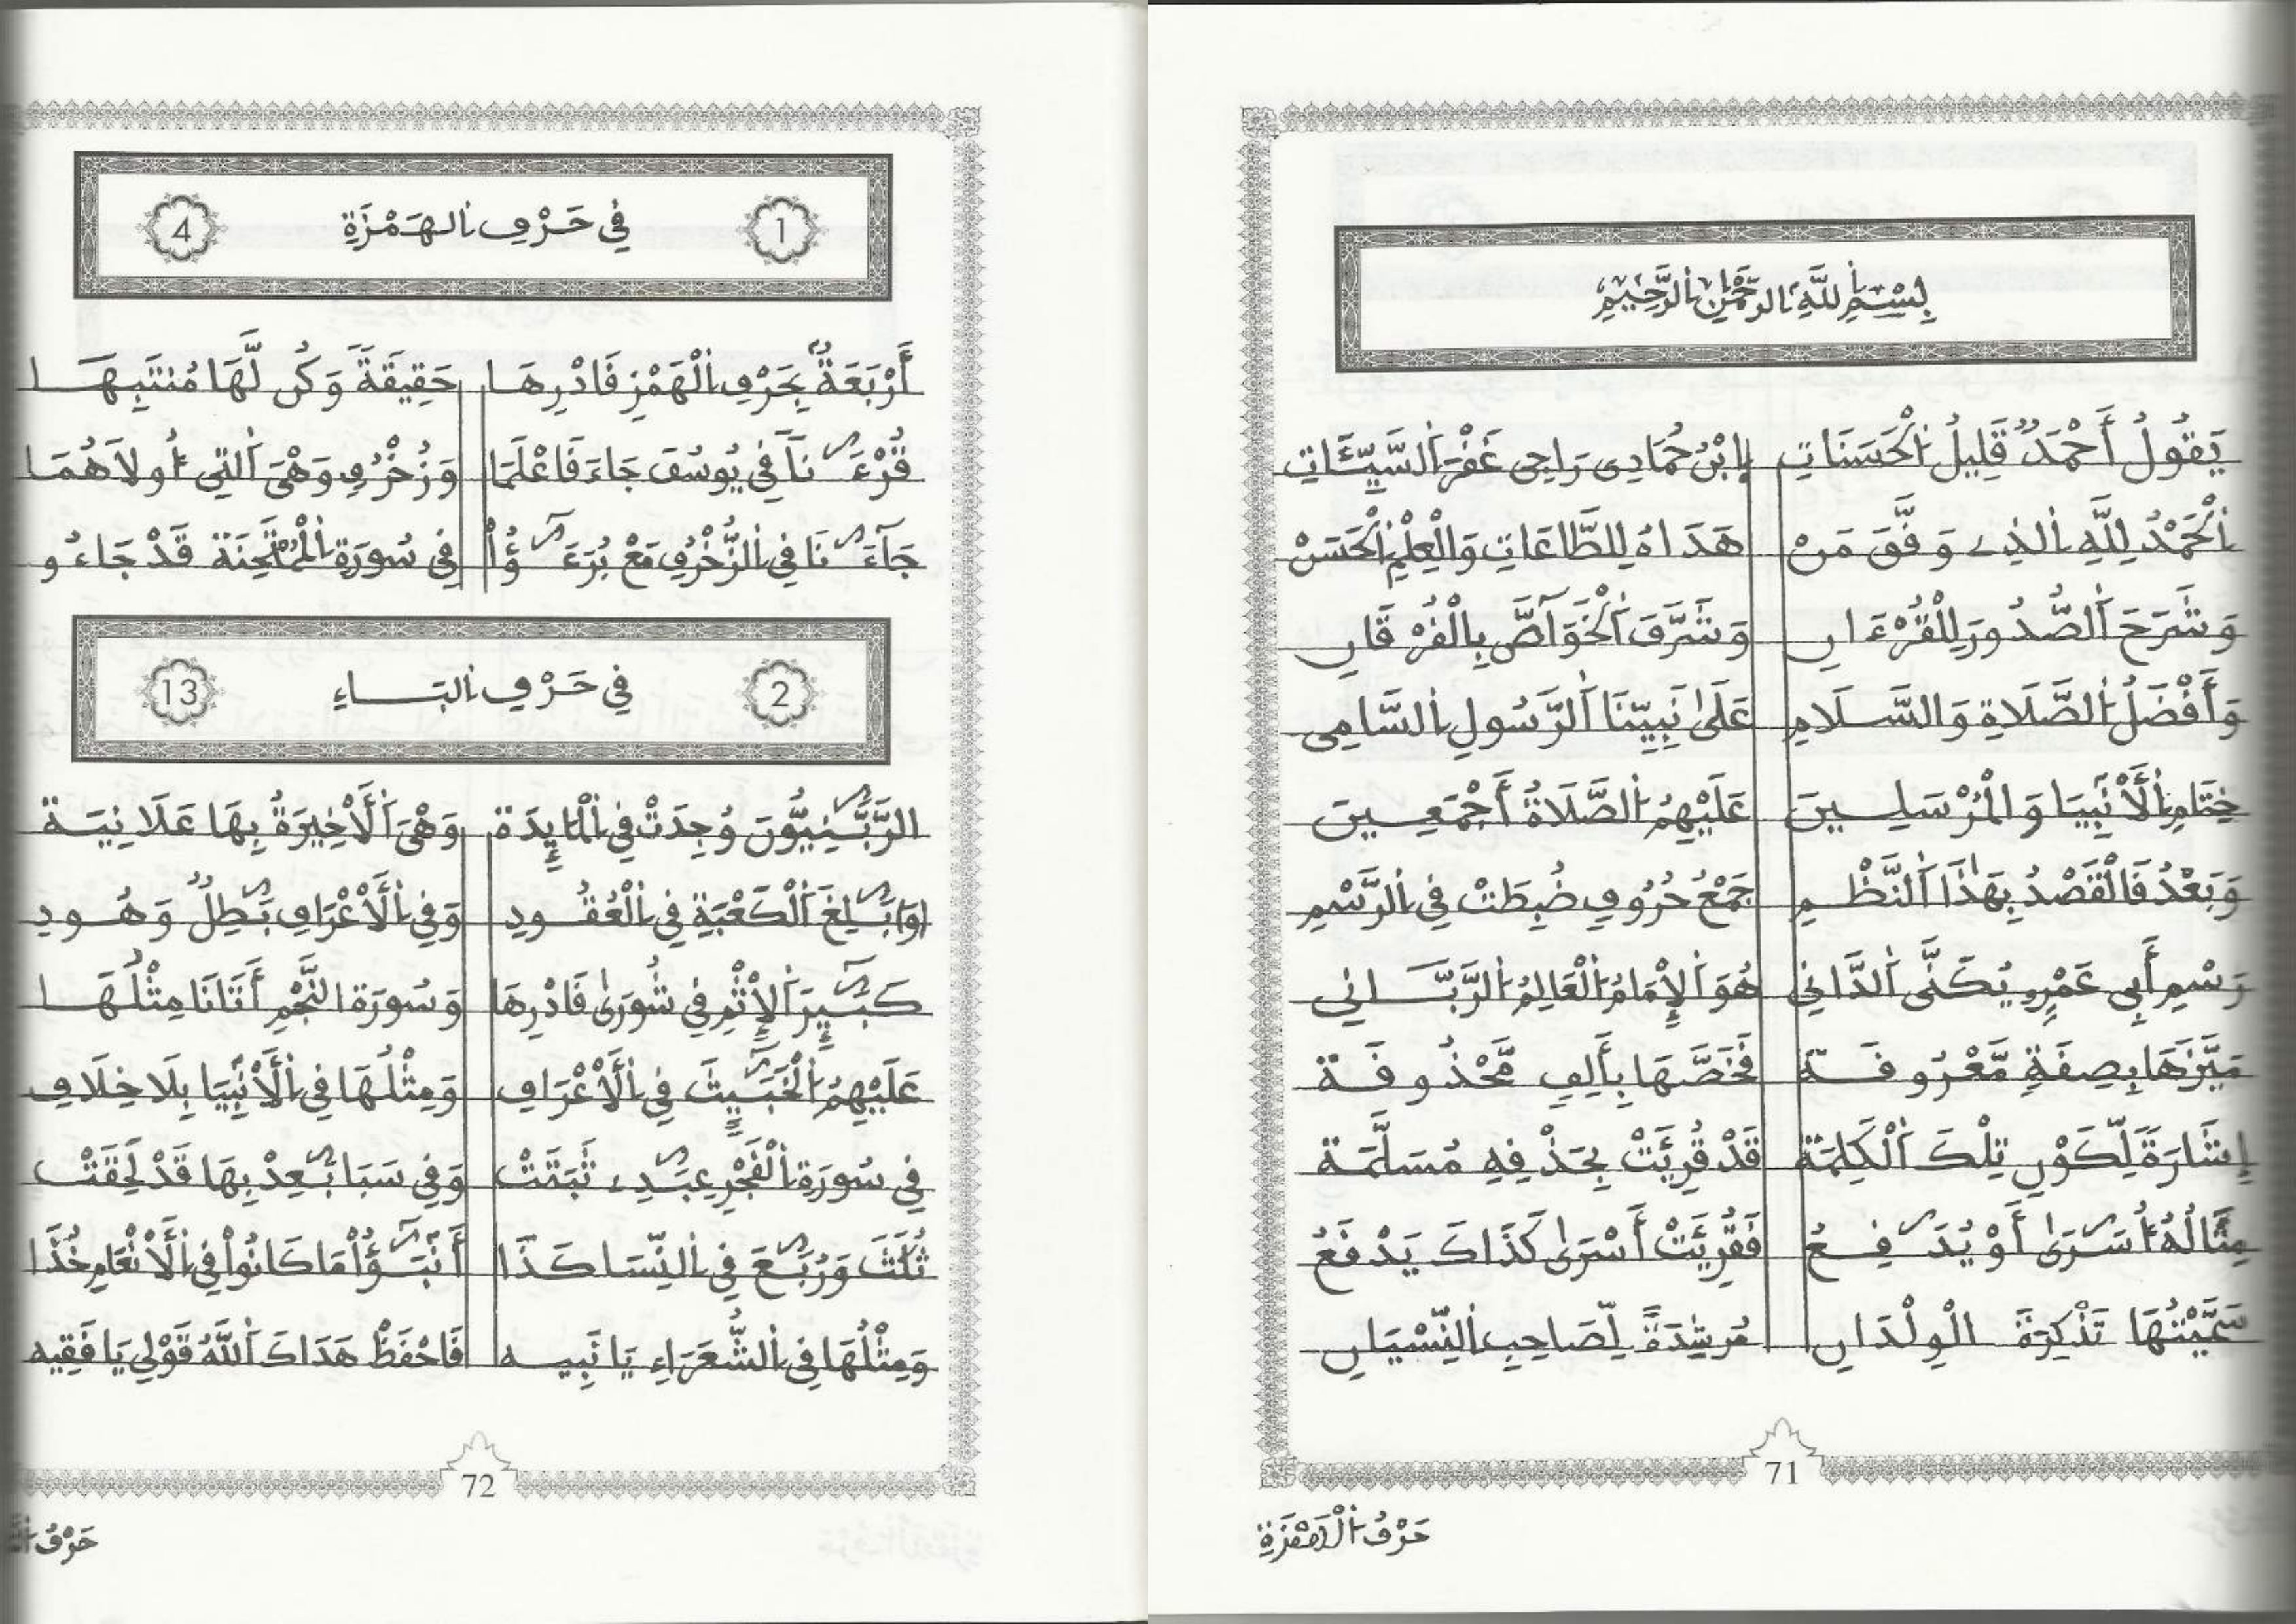 بِسْمِ اللَّهِ الرَّحْمَٰنِ الرَّحِيمِ
يَقُولُ أَحْمَدُ قَلِيلُ الْحَسَنَاتِ اِبْنُ حُمَادِى رَاجِى غَفْرَ السَّيِّئَاتِ
الْحَمْدُ لِلَّهِ الذِے وَفَّقَ مَنْ هَدَاهُ لِلطَّاعَاتِ وَالْعِلْمِ الْحَسَنْ
وَشَرَحَ الصُّدُورَ لِلْقُرْءَانِ وَشَرَّفَ الْخَوَآصَّ بِالْفُرْقَانِ
وَأَفْضَلُ الصَّلَاةِ وَالسَّلَامِ عَلَىٰ نَبِيِّنَا الرَّسُولِ السَّامِى
خِتَامِ الْأَنْبِيَا وَالْمُرْسَلِينَ عَلَيْهِمُ الصَّلَاةُ أَجْمَعِينَ
وَبَعْدُ فَالْقَصْدُ بِهَٰذَا النَّظْمِ جَمْعُ حُرُوفٍ ضُبِطَتْ فِي الرَّسْمِ
رَسْمِ أَبِي عَمْرٍو يُكَنَّى الدَّانِي هُوَ الْإِمَامُ الْعَالِمُ الرَّبَّانِي
مَيَّزَهَا بِصِفَةٍ مَّعْرُوفَة فَخَصَّهَا بِأَلِفٍ مَّحْذُوفَة
إِشَارَةً لِّكَوْنِ تِلْكَ الْكَلِمَة قَدْ قُرِئَتْ بِحَذْفِهِ مُسَلَّمَة
مِثَالُهُ أُسَٰرَىٰ أَوْ يُدَٰفِعُ فَقُرِئَتْ أَسْرَىٰ كَذَاكَ يَدْفَعُ
سَمَّيْتُهَا تَذْكِرَةَ الْوِلْدَانِ مُرشِدَةً لِّصَاحِبِ النِّسْيَانِ
71
حَرْفُ الْهَمْزَةِ
1 فِي حَرْفِ الهَمْزَةِ 4
أَرْبَعَةٌ بِحَرْفِ الْهَمْزِ فَادْرِهَا حَقِيقَةً وَكُن لَّهَا مُنتَبِهَا
قُرْءَٰنَآ فِي يُوسُفَ جَاءَ فَاعْلَمَا وَزُخْرُفٍ وَهْىَ التِي أُولَاهُمَا
جَآءَٰنَا فِي الزُّخْرُفِ مَعْ بُرَءَٰٓؤُاْ فِي سُورَةِ الْمُمْتَحِنَةِ قَدْ جَاءُو
2 فِي حَرْفِ البَاءِ 13
الرَّبَّٰنِيُّونَ وُجِدَتْ فِي الْمَائِدَة وَهْىَ الْأَخِيرَةُ بِهَا عَلَانِيَة
(وَ) بَٰلِغَ الْكَعْبَةِ فِي الْعُقُودِ وَفِي الْأَعْرَافِ بَٰطِلٌ وَهُودِ
كَبَٰٓئِرَ الْإِثْمِ فِي شُورَىٰ فَادْرِهَا وَسُورَةِ النَّجْمِ أَتَانَا مِثْلُهَا
عَلَيْهِمُ الْخَبَٰٓئِثَ فِي الْأَعْرَافِ وَمِثْلُهَا فِي الْأَنْبِيَا بِلَا خِلَافِ
فِي سُورَةِ الْفَجْرِ عِبَٰدِے ثَبَتَتْ وَفِي سَبَا بَٰعِدْ بِهَا قَدْ لَحِقَتْ
ثُلَثَ وَرُبَٰعَ فِي النِّسَا كَذَا أَنۢبَٰٓؤُاْ مَا كَانُواْ فِي الْأَنْعَامِ خُذَا
وَمِثْلُهَا فِي الشُّعَرَاءِ يَا نَبِيه فَاحْفَظْ هَدَاكَ اللَّهُ قَوْلِي يَا فَقِيه
72
حَرْفُ